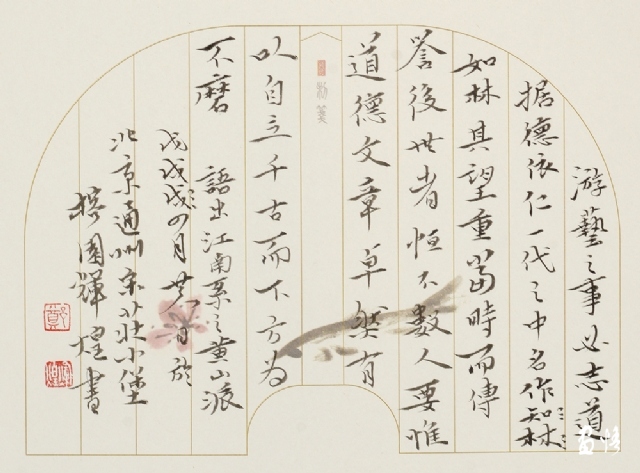 游藝之事必志道
据德依仁一代之中名作如林
如林其望重當時而傳
譽後世者恒不數人要惟
道德文章卓然有
以自立千古而不方為
不磨 語出江南系之黄山派
戊戌戌四月廿八日於
北京通州宋莊小堡
輝煌書